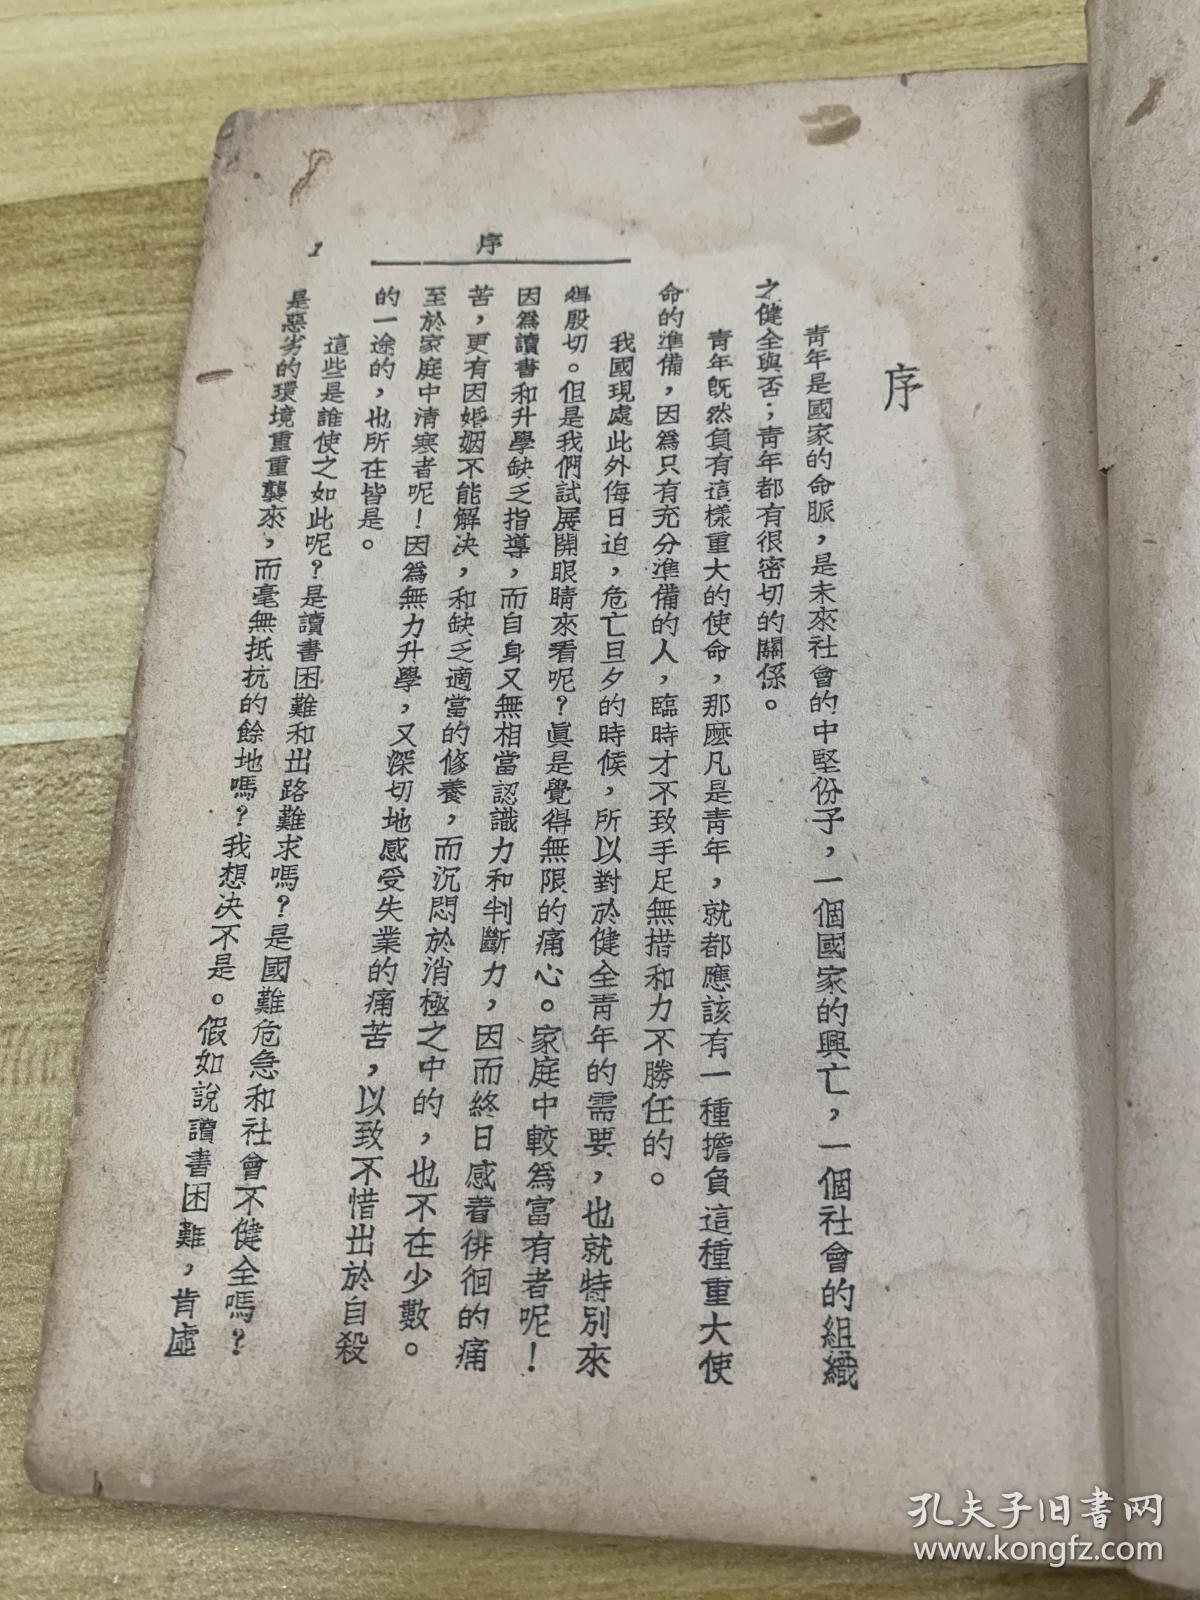 序
青年是國家的命脈，是未來社會的中堅份子，一個國家的興亡，一個社會的組織
之健全與否；青年都有很密切的關係。
青年旣然負有這樣重大的使命，那麼凡是青年，就都應該有一種擔負這種重大使
命的準備，因爲只有充分準備的人，臨時才不致手足無措和力不勝任的。
我國現處此外侮日迫，危亡旦夕的時候，所以對於健全青年的需要，也就特別來
得殷切。但是我們試展開眼睛來看呢？眞是覺得無限的痛心。家庭中較爲富有者呢！
因爲讀書和升學缺乏指導，而自身又無相當認識力和判斷力，因而終日感着徘徊的痛
苦，更有因婚姻不能解决，和缺乏適當的修養，而沉悶於消極之中的，也不在少數。
至於家庭中清寒者呢！因爲無力升學，又深切地感受失業的痛苦，以致不惜出於自殺
的一途的，也所在皆是。
這些是誰使之如此呢？是讀書困難和出路難求嗎？是國難危急和社會不健全嗎？
是惡劣的環境重重襲來，而毫無抵抗的餘地嗎？我想决不是。假如說讀書困難，肯虛
序
1
孔夫子旧书网
www.kongfz.com